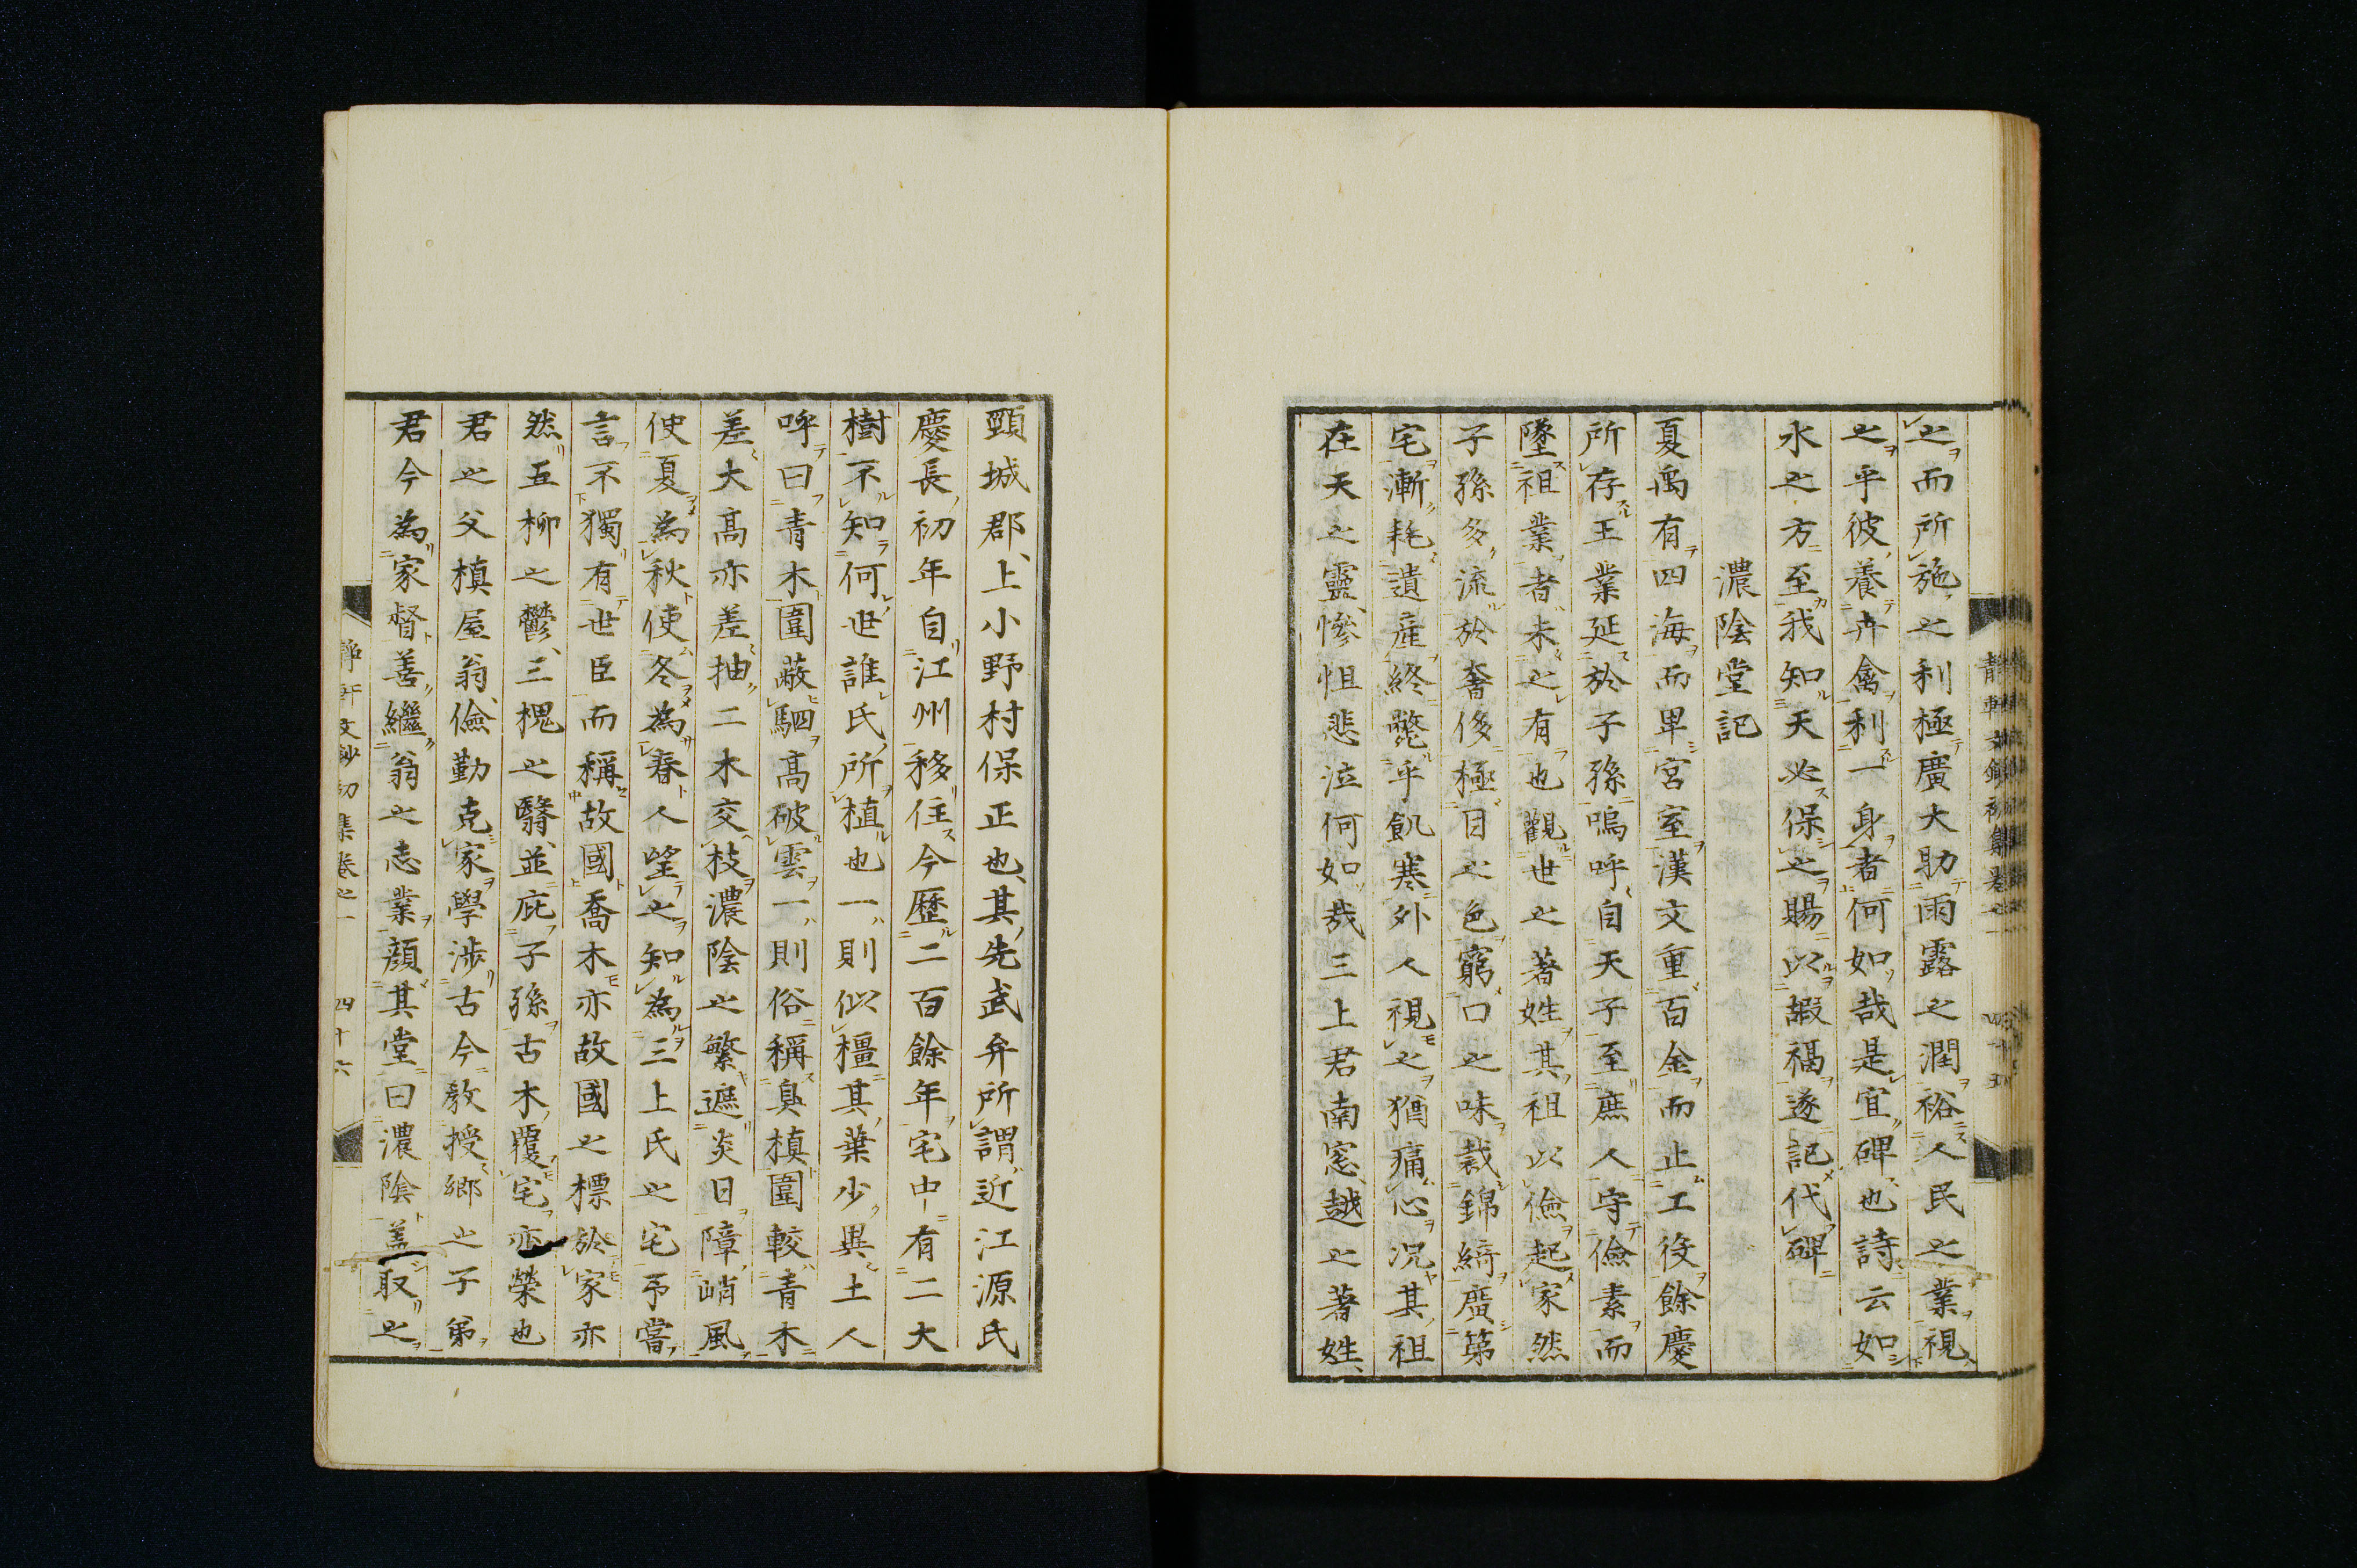 之而所施之利極廣大助雨露之潤裕人民之業視
之乎彼養卉禽利一身者何如哉是宜碑也詩云如
水之方至我知天必保之賜以嘏福遂記代碑
濃陰堂記
夏禹有四海而卑宮室漢文重百金而止工役餘慶
所存王業延於子孫嗚呼自天子至庶人守儉素而
墜祖業者未之有也觀世之著姓其祖以儉起家然
子孫多流於奢侈極目之色窮口之味裁錦綺廣第
宅漸耗遺產終斃乎飢寒外人視之猶痛心况其祖
在天之靈慘怛悲泣何如哉三上君南窓越之著姓
頸城郡上小野村保正也其先武弁所謂近江源氏
慶長初年自江州移住今歷二百餘年宅中有二大
樹不知何世誰氏所植也一則似橿其葉少異土人
呼曰青木圍蔽駟高破雲一則俗稱臭槙圍較青木
差大高亦差抽二木交枝濃陰之繁遮炎日障峭風
使夏為秋使冬為春人望之知為三上氏之宅弔當
言不獨有世臣而稱故國喬木亦故國之標於家亦
然五柳之鬱三槐之翳並庇子孫古木覆宅亦榮也
君之父槙屋翁儉勤克家學涉古今教授鄉之子弟
君今為家督善繼翁之志業顏其堂曰濃陰盖取之
靜軒文鈔初集卷之一 四十六